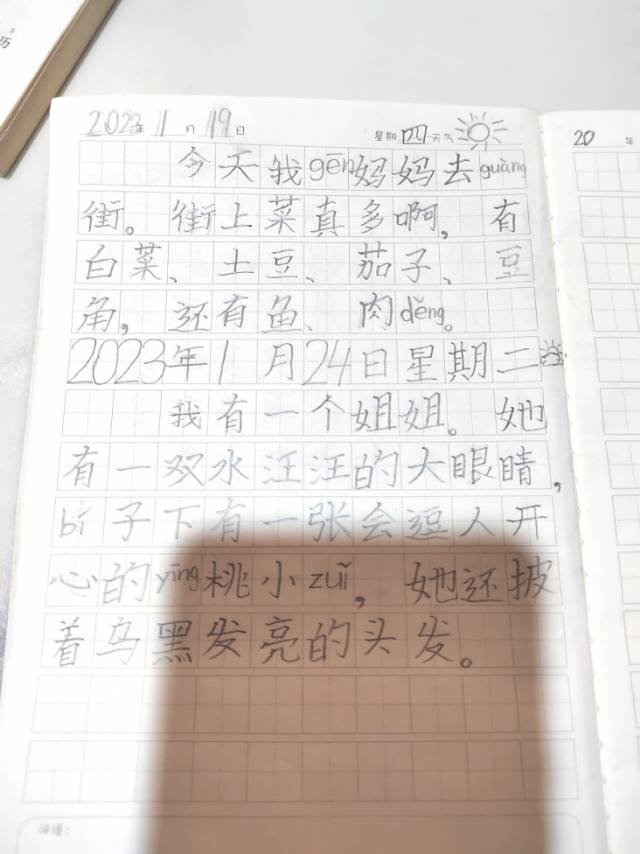 历
2023年11月19日 星期四 天气
20 年
今天我gēn妈妈去guàng
街。街上菜真多啊，有
白菜、土豆、茄子、豆
角，还有鱼、肉děng。
2023年1月24日星期二
我有一个姐姐。她
有一双水汪汪的大眼睛，
bí子下有一张会逗人开
心的yīng桃小zuǐ，她还披
着乌黑发亮的头发。
评语：